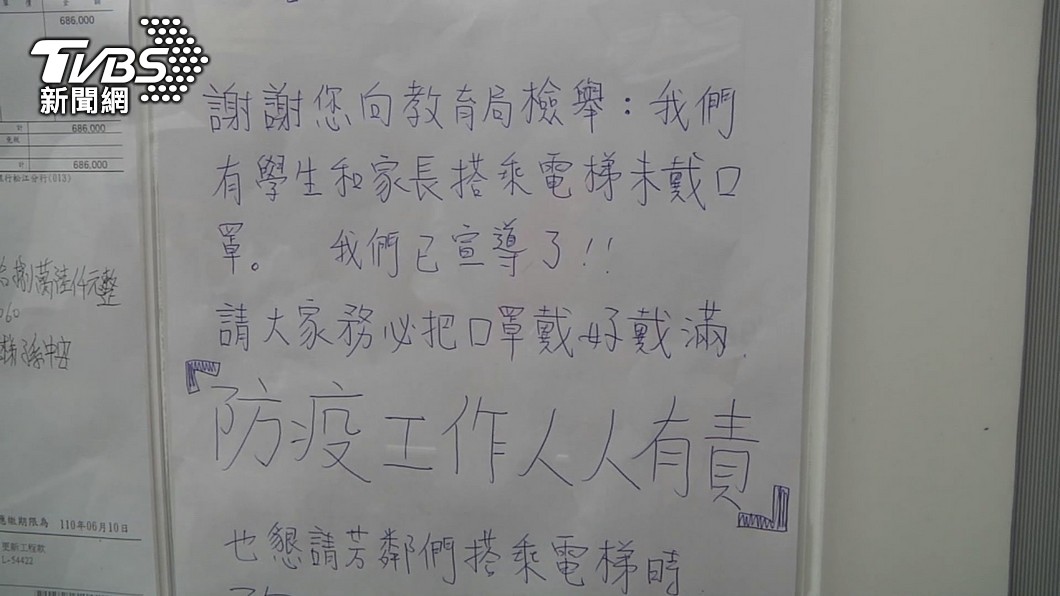 TVBS
新聞網
686,000
計 686,000
計 686,000
110年06月10日
L-54422
謝謝您向教育局檢舉：我們
有學生和家長搭乘電梯未戴口
罩。 我們已宣導了!!
請大家務必把口罩戴好戴滿.
『防疫工作人人有責』
也懇請芳鄰們搭乘電梯時